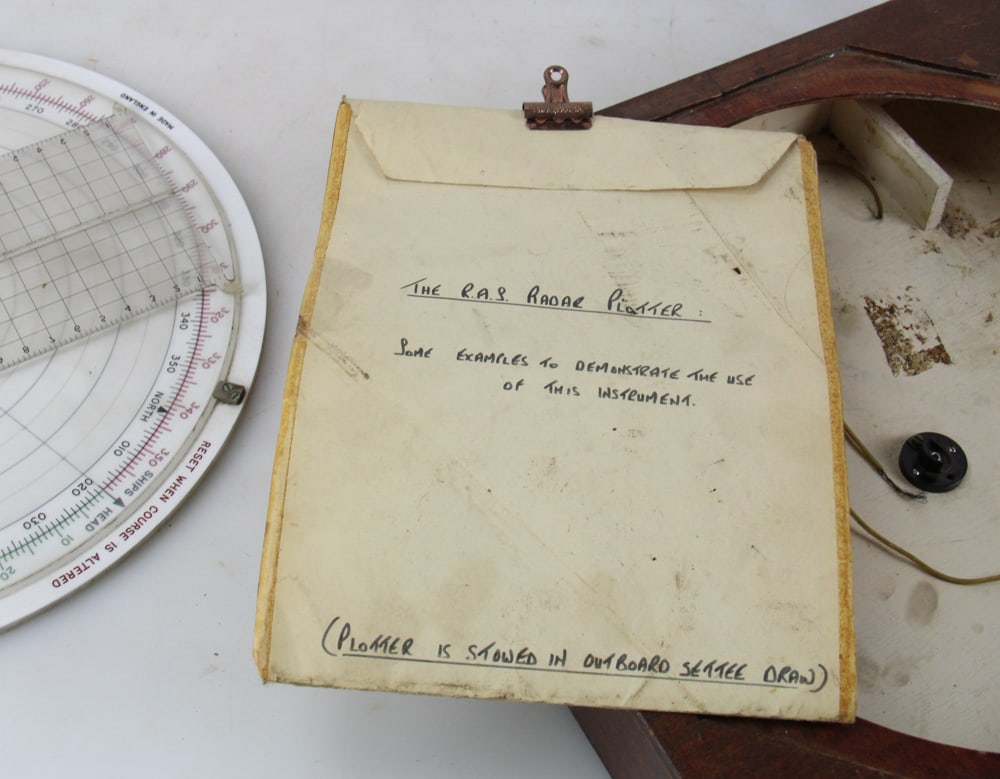 THE R.A.S. RADAR PLOTTER :
SOME EXAMPLES TO DEMONSTRATE THE USE
OF THIS INSTRUMENT.
(PLOTTER IS STOWED IN OUTBOARD SETTEE DRAW)
MADE IN ENGLAND
270
280
290
300
320
330
340
350
340
350
NORTH
010
020
030
SHIPS HEAD
10
20
RESET WHEN COURSE IS ALTERED